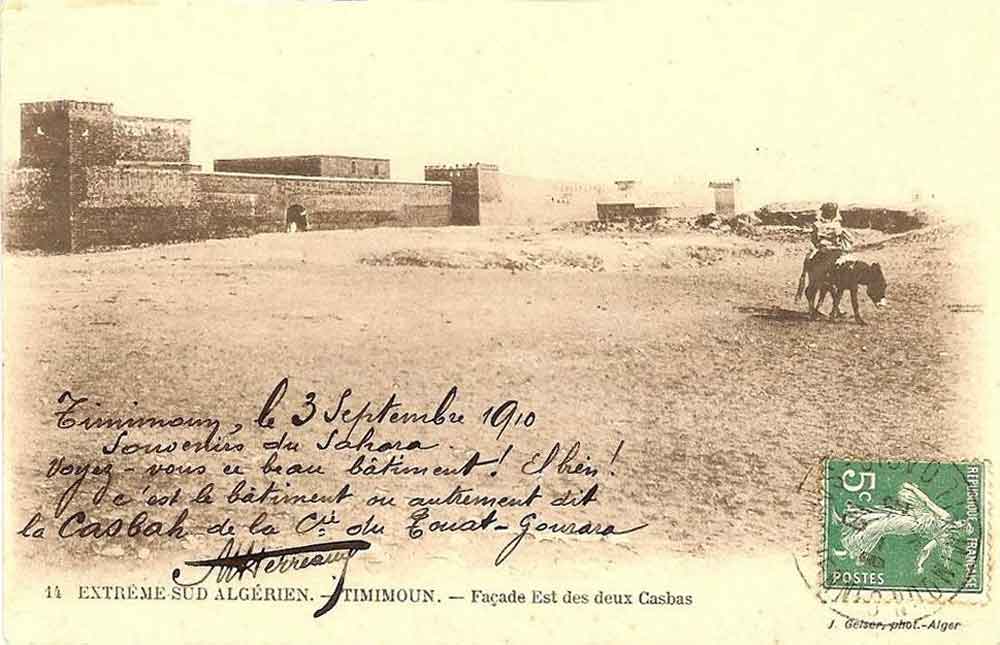 Timimoun, le 3 Septembre 1910
Souvenirs du Sahara.
Voyez-vous ce beau bâtiment! Eh bien!
c'est le bâtiment ou autrement dit
la Casbah de la Cie du Touat-Gourara
14 EXTRÊME-SUD ALGÉRIEN. — TIMIMOUN. — Façade Est des deux Casbas
J. Geiser, phot.-Alger
5c
POSTES
REPUBLIQUE FRANÇAISE